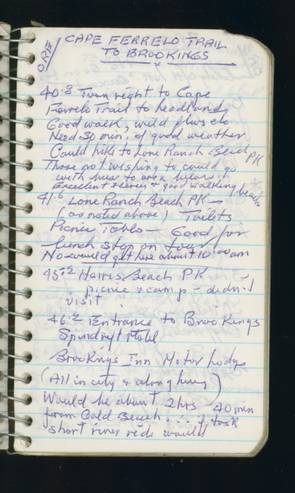 ORE
CAPE FERRELO TRAIL
TO BROOKINGS
40.8 Turn right to Cape
Ferrelo Trail to headlands
Good walk, wild flws etc
Need 30 min. of good weather
Could hike to Lone Ranch Beach PK
Those not wishing to could go
with bus to area below
Excellent scenery & good walking beach
41.6 Lone Ranch Beach PK —
(as noted above) Toilets
Picnic tables — Good for
lunch stop on tour
No would get here about 10:00 am
45.2 Harris Beach PK —
picnic & camp — didn't
visit
46.2 Entrance to Brookings
Spindrift Motel
Brookings Inn Motor Lodge
(All in city & along hiway)
Would be about 2 hrs 40 min
from Gold Beach ... if took
short river ride would